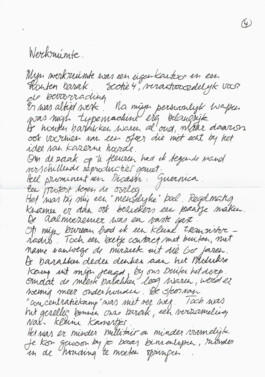 4
Werkruimte.
Mijn werkruimte was een eigen kantoor in een
houten barak "Sectie 4", verantwoordelijk voor
de bevoorrading
Er was altijd werk. Na mijn persoonlijk wapen
was mijn typemachine erg belangrijk
De houten barakken waren al oud, maar daarom
ook voorzien van een sfeer die niet echt bij het
idee van kazerne hoorde.
Om de zaak op te fleuren had ik tegen de wand
verschillende reproducties
Heel prominent een Picasso: Guernica
Een protest tegen de oorlog
Het was bij mij een "menselijke" boel. Regelmatig
kwamen er dan ook bezoekers een praatje maken.
De aalmoezenier was een vaste gast.
Op mijn bureau had ik een kleine transistor-
radio. Toch een beetje contact met buiten, met
name vanwege de muziek uit die 60er jaren.
De barakken deden denken aan het
kamp uit mijn jeugd, bij ons buiten het dorp
Omdat de meeste barakken leeg waren, werd er
weinig meer onderhouden. De
"concentratiekamp" was niet ver weg. Toch was
het gezellig binnen onze barak, een verzameling
van kleine kamertjes
Het was er minder militair en minder vormelijk
Je kon gewoon bij je baas binnenlopen, zonder
in de "houding" te moeten springen.